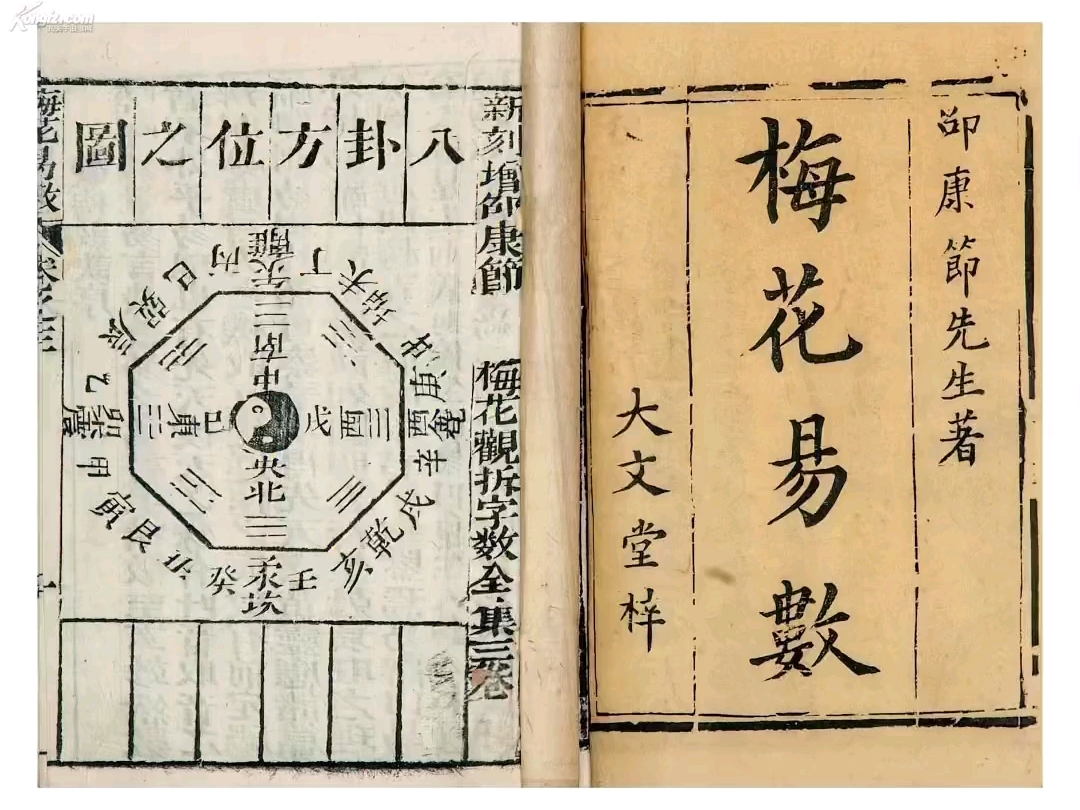 邵康節先生著
梅花易數
大文堂梓
新刻增邵康節
梅花觀拆字數全集三卷
八卦方位之圖
丙
離
丁
未
坤
庚
酉
兌
辛
戌
乾
亥
壬
坎
癸
艮
寅
甲
卯
震
乙
辰
巽
巳
南
中
東
巳
戊
酉
央
北
梅花易數
卷之三
Kongfz.com